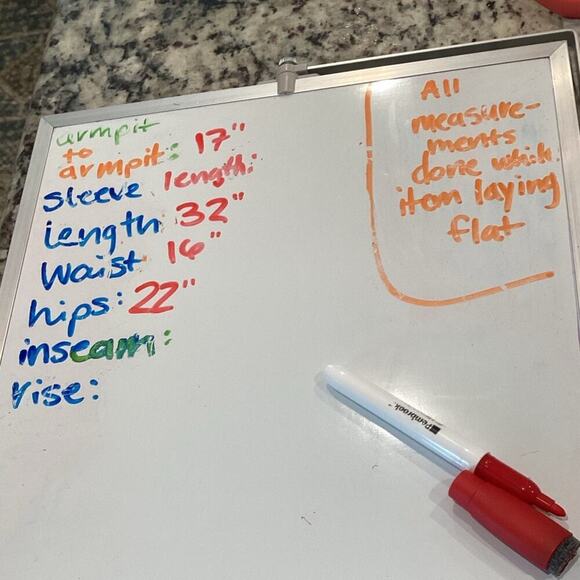 armpit
to
armpit: 17"
sleeve length:
length 32"
Waist 16"
hips: 22"
inseam:
rise:
All
measure-
ments
done
laying
flat
Pembrook